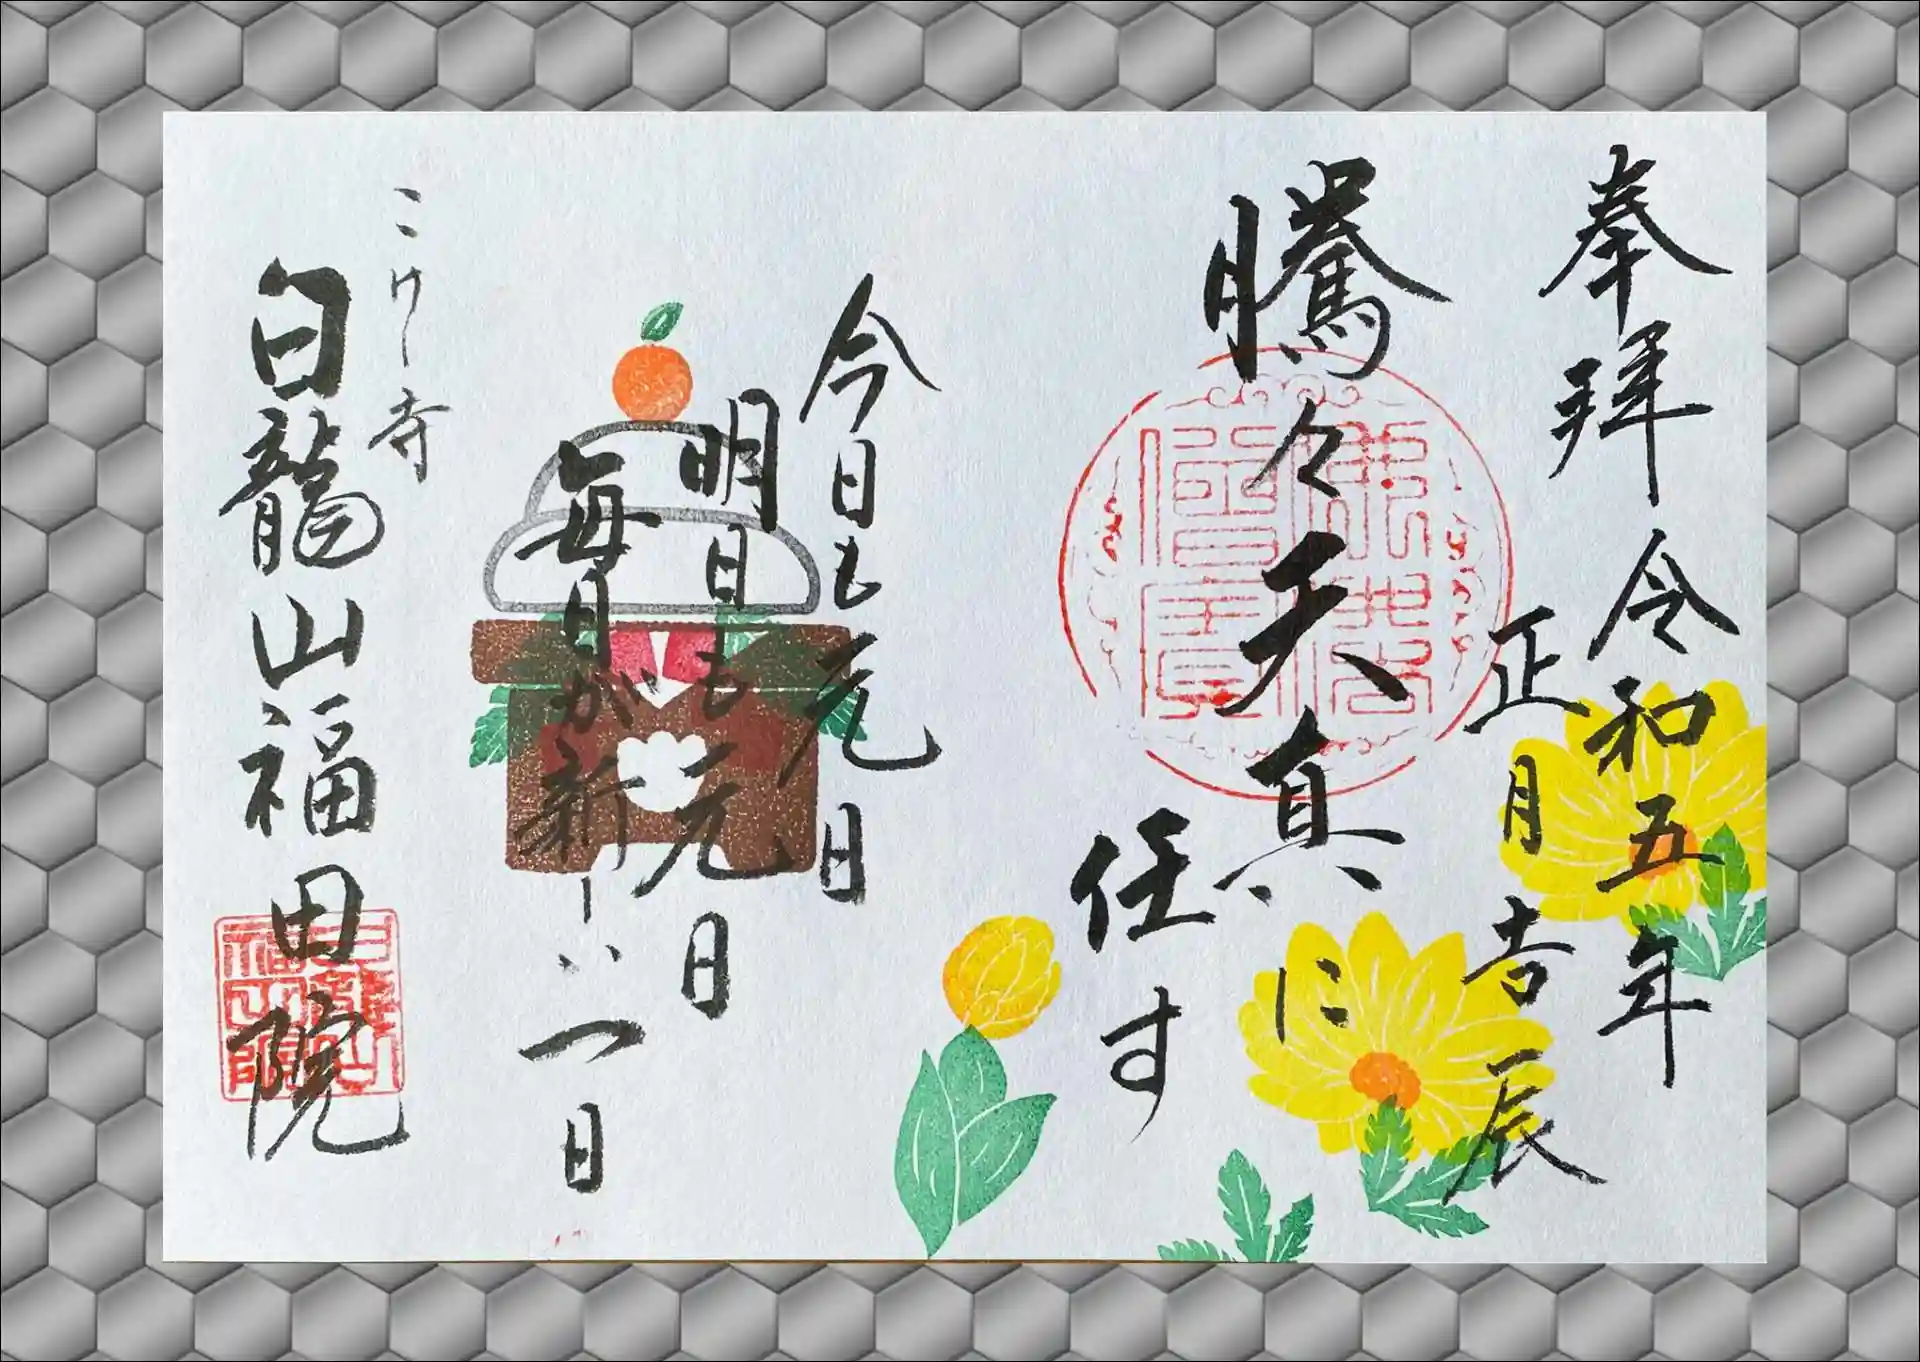 奉拝 令和五年
正月吉辰
騰々天真に
任す
今日も元旦
明日も元旦
毎日が新しい一日
こけし寺
白龍山福田院
佛法僧寶